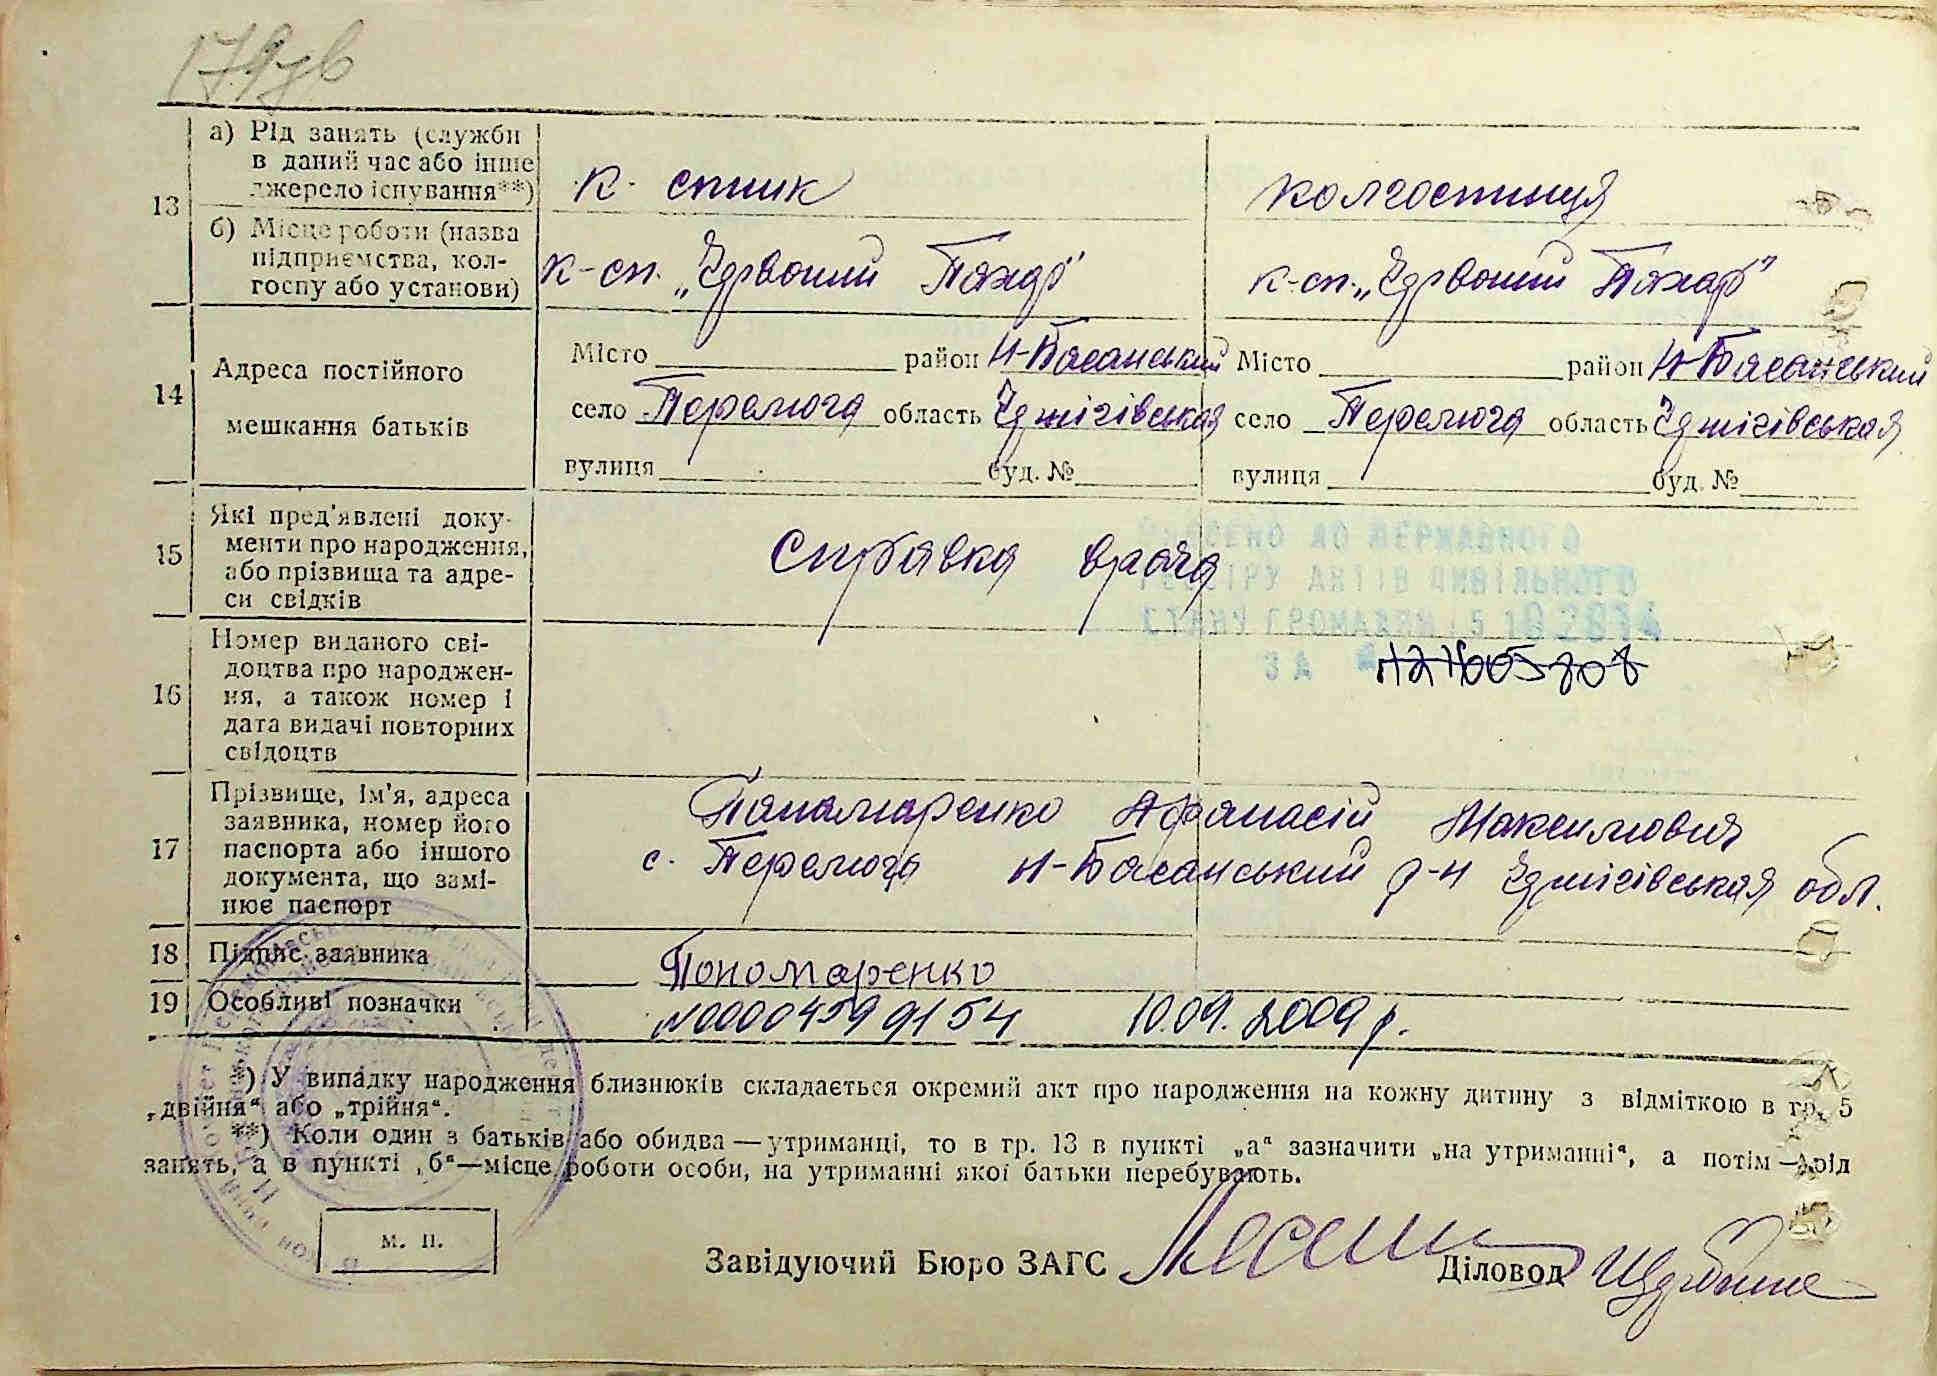 179зв
а) Рід занять (служби
в даний час або інше
джерело існування**)
к-спник
колгоспниця
13
б) Місце роботи (назва
підприємства, кол-
госпу або установи)
к-сп. „Червоний Пахар"
к-сп. „Червоний Пахар"
14
Адреса постійного
мешкання батьків
Місто район Н-Басанський
село Перемога область Чернігівська
вулиця буд. №
Місто район Н-Басанський
село Перемога область Чернігівська
вулиця буд. №
15
Які пред'явлені доку-
менти про народження,
або прізвища та адре-
си свідків
Справка врача
ВНЕСЕНО ДО ДЕРЖАВНОГО
РЕЄСТРУ АКТІВ ЦИВІЛЬНОГО
СТАНУ ГРОМАДЯН
ЗА №
16
Номер виданого сві-
доцтва про народжен-
ня, а також номер і
дата видачі повторних
свідоцтв
17
Прізвище, ім'я, адреса
заявника, номер його
паспорта або іншого
документа, що замі-
нює паспорт
Панамаренко Афанасій Максимович
с. Перемога Н-Басанський р-н Чернігівська обл.
18 Підпис заявника
Пономаренко
19 Особливі позначки
№00004599154 10.09.2009р.
*) У випадку народження близнюків складається окремий акт про народження на кожну дитину з відміткою в гр. 5
„двійня" або „трійня".
**) Коли один з батьків або обидва — утриманці, то в гр. 13 в пункті „а" зазначити „на утриманні", а потім — рід
занять, а в пункті „б"—місце роботи особи, на утриманні якої батьки перебувають.
м. п.
Завідуючий Бюро ЗАГС
Діловод